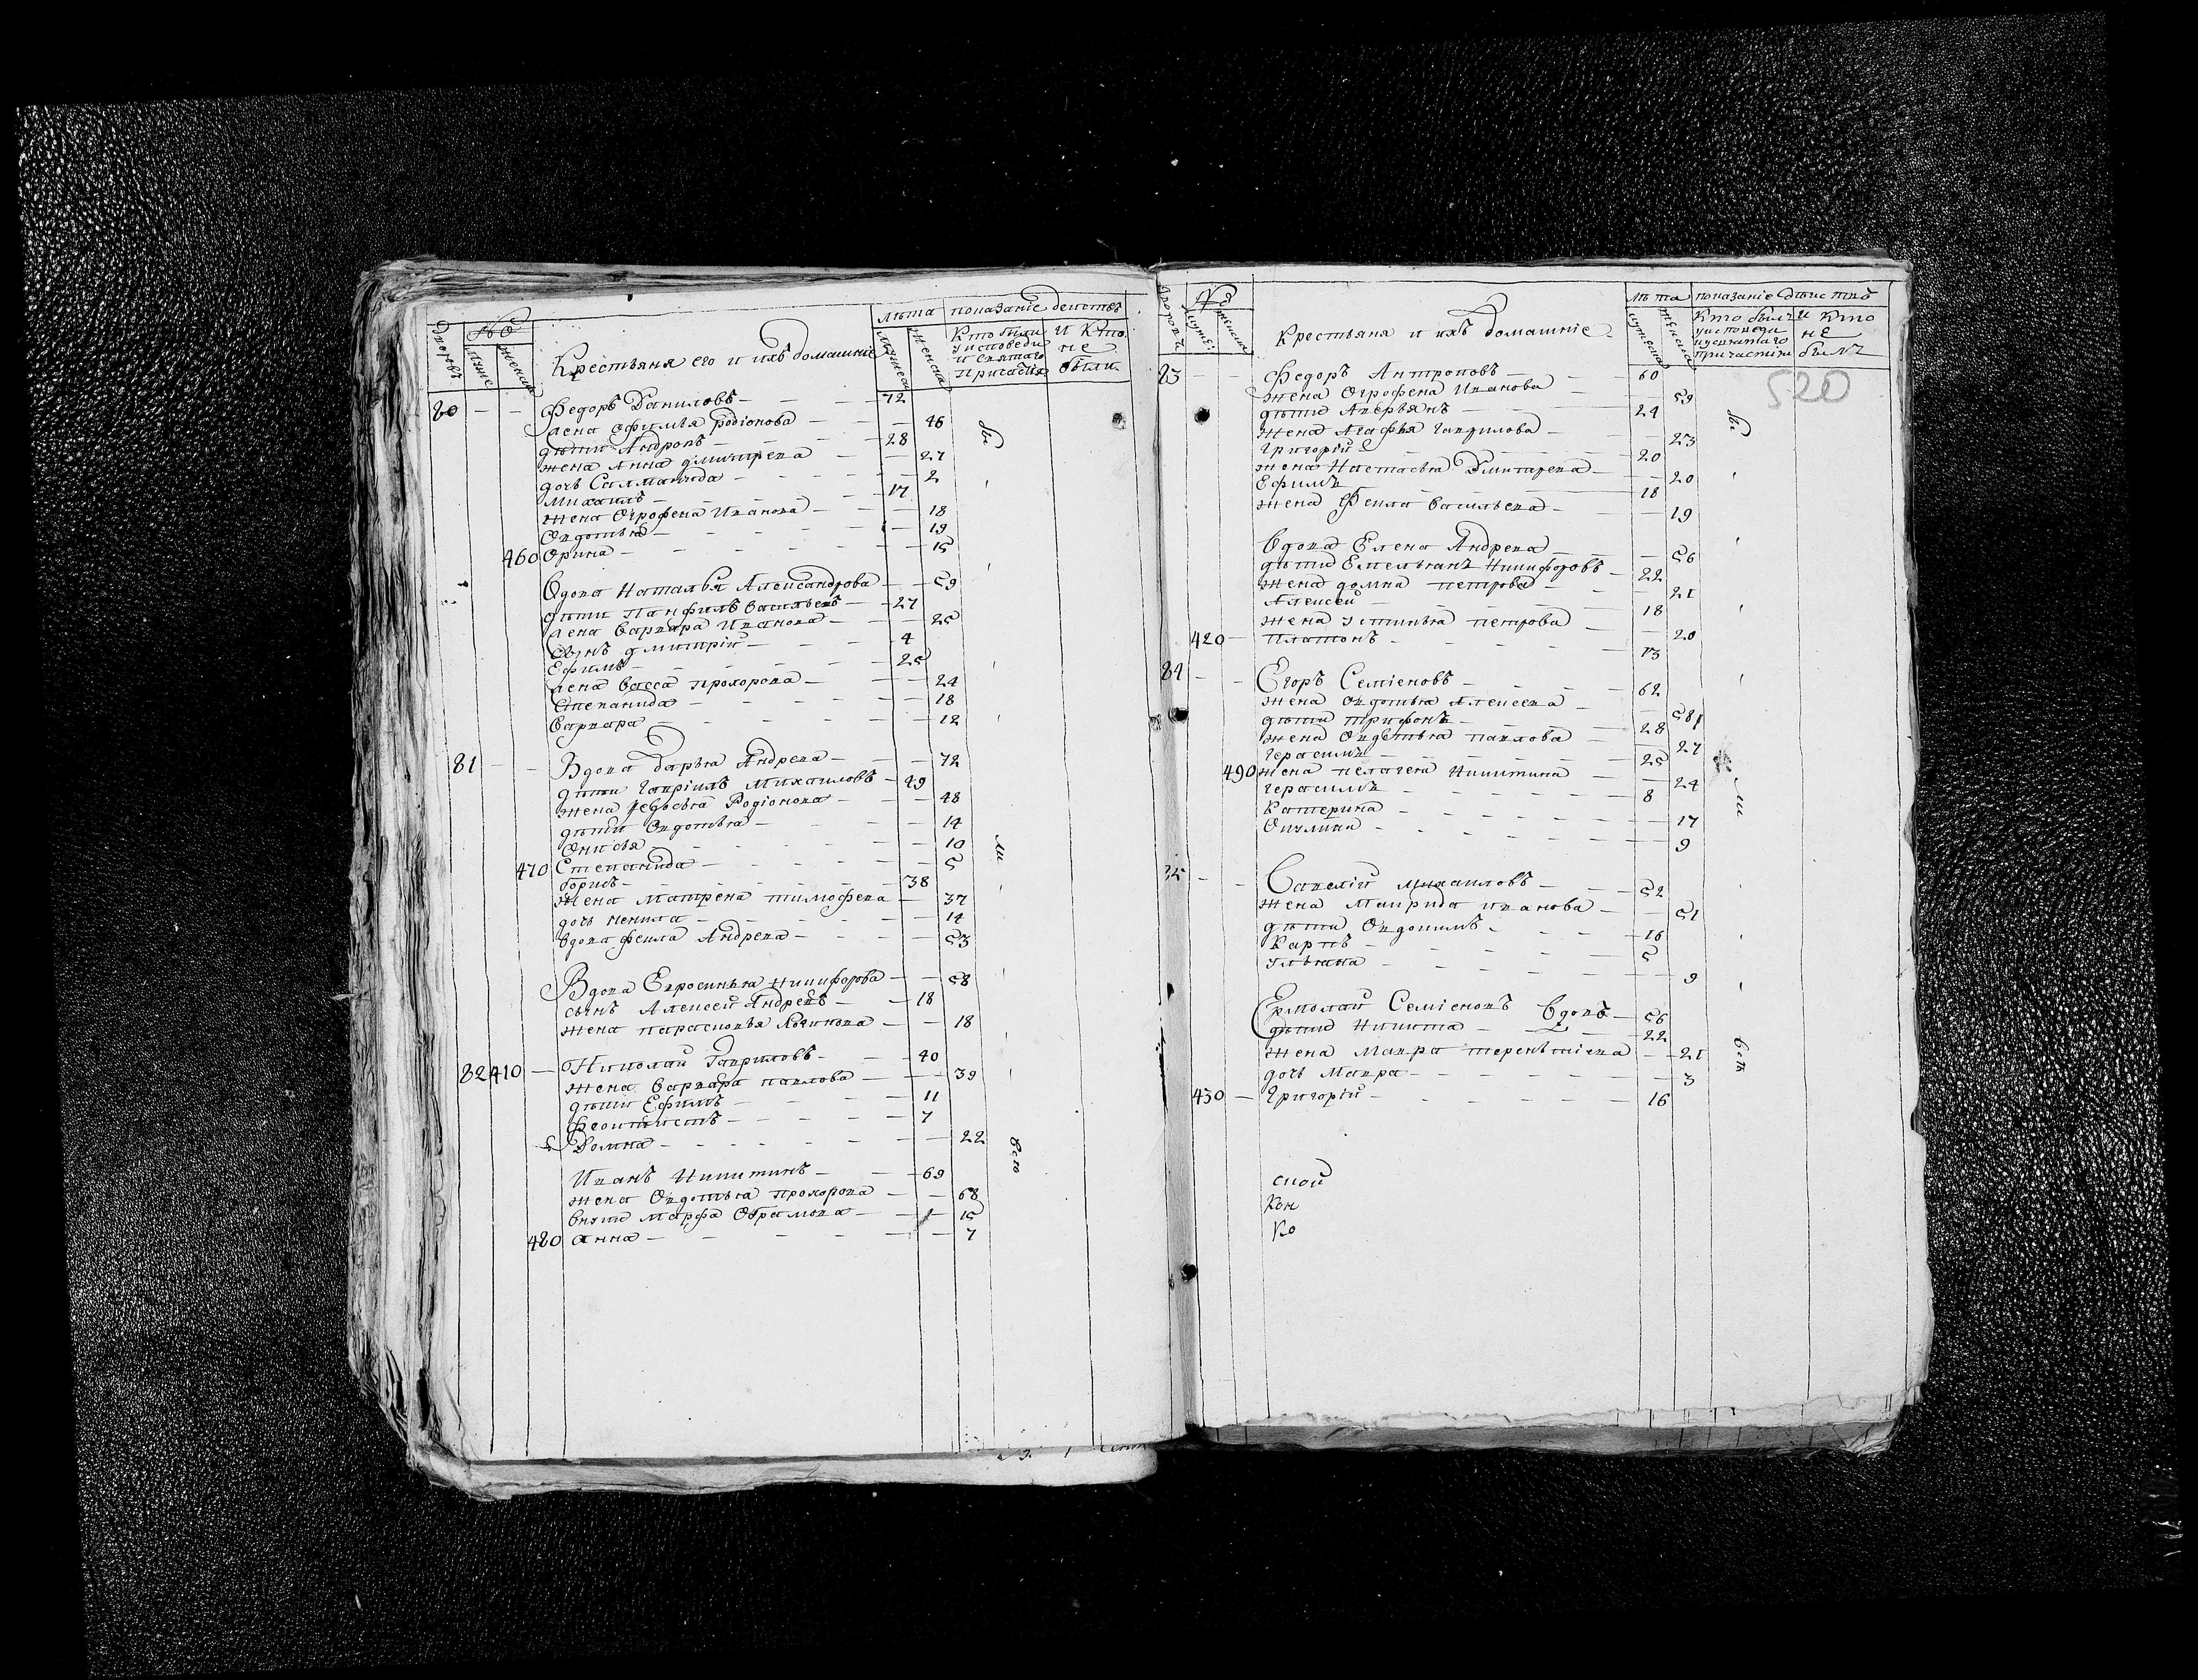 Дворовъ № Крестьяня его и ихъ домашніе лѣта показаніе действъ
мужеска женска Кто были у исповеди и святаго Причастія И Кто не были
80 — — Федоръ Даниловъ — 72
жена Офимья родіонова — 46
дѣти Андронъ — 28
жена Анна дмитрева — 27
дочь Саламанида — 2
Михаилъ — 17
жена Огрофена Иванова — 18
Овдотья — 19
460 Орина — 15
Вдова Наталья Александрова — 59
дѣти Панфилъ васильевъ — 27
жена Варвара Иванова — 25
Сынъ дмитрій — 4
Ефимъ — 25
жена Васса прохорова — 24
Степанида — 18
Варвара — 12
81 — — Вдова дарья Андрева — 72
дѣти Гавріилъ Михаиловъ — 49
жена федосья Родіонова — 48
дѣти Овдотья — 14
Онисья — 10
470 Степанида — 5
борисъ — 38
жена Матрена тимофева — 37
дочь ненила — 14
вдова фекла Андрева — 53
Вдова Евросинья Никифорова — 58
сынъ Алексей Андревъ — 18
жена парасковья — 18
82 410 — Николай Гавриловъ — 40
жена Варвара павлова — 39
дѣти Ефимъ — 11
Феоктистъ — 7
Домна — 22
Иванъ Никитинъ — 69
жена Овдотья прохорова — 68
внуки Марфа Обрамова — 15
480 анна — 7
бы
ли
всѣ
Дворовъ № Крестьяня и ихъ домашніе лѣта показаніе дѣиство
мужеска женска Кто были у исповеди и святаго причастія и Кто не былъ
520
83 — — Федоръ Антроповъ — 60
жена Огрофена Иванова — 59
дѣти Аверьянъ — 24
жена Агафья гаврилова — 23
Григорій — 20
жена Настасья Дмитрева — 20
Ефимъ — 18
жена Фекла васильева — 19
Вдова Елена Андрева — 56
дѣти Емельянъ Никифоровъ — 22
жена домна петрова — 21
Алексей — 18
жена устинья петрова — 20
420 — платонъ — 13
84 — — Егоръ Семіоновъ — 62
жена Овдотья Алексева — 58
дѣти трифонъ — 28
жена Овдотья павлова — 27
Герасимъ — 25
490 жена пелагея Никитина — 24
герасимъ — 8
Катерина — 17
Окулина — 9
85 — — Савелій михаиловъ — 52
жена Маврида иванова — 51
дѣти Овдокимъ — 16
Карпъ — 5
ульяна — 9
Ермолай Семіоновъ Вдовъ — 56
дѣти Никита — 22
жена Мавра терентиева — 21
дочь Мавра — 3
430 — Григорій — 16
бы
ли
всѣ
скои
Кон
Ко